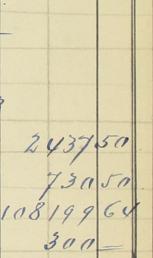 243750
73050
10819964
300—